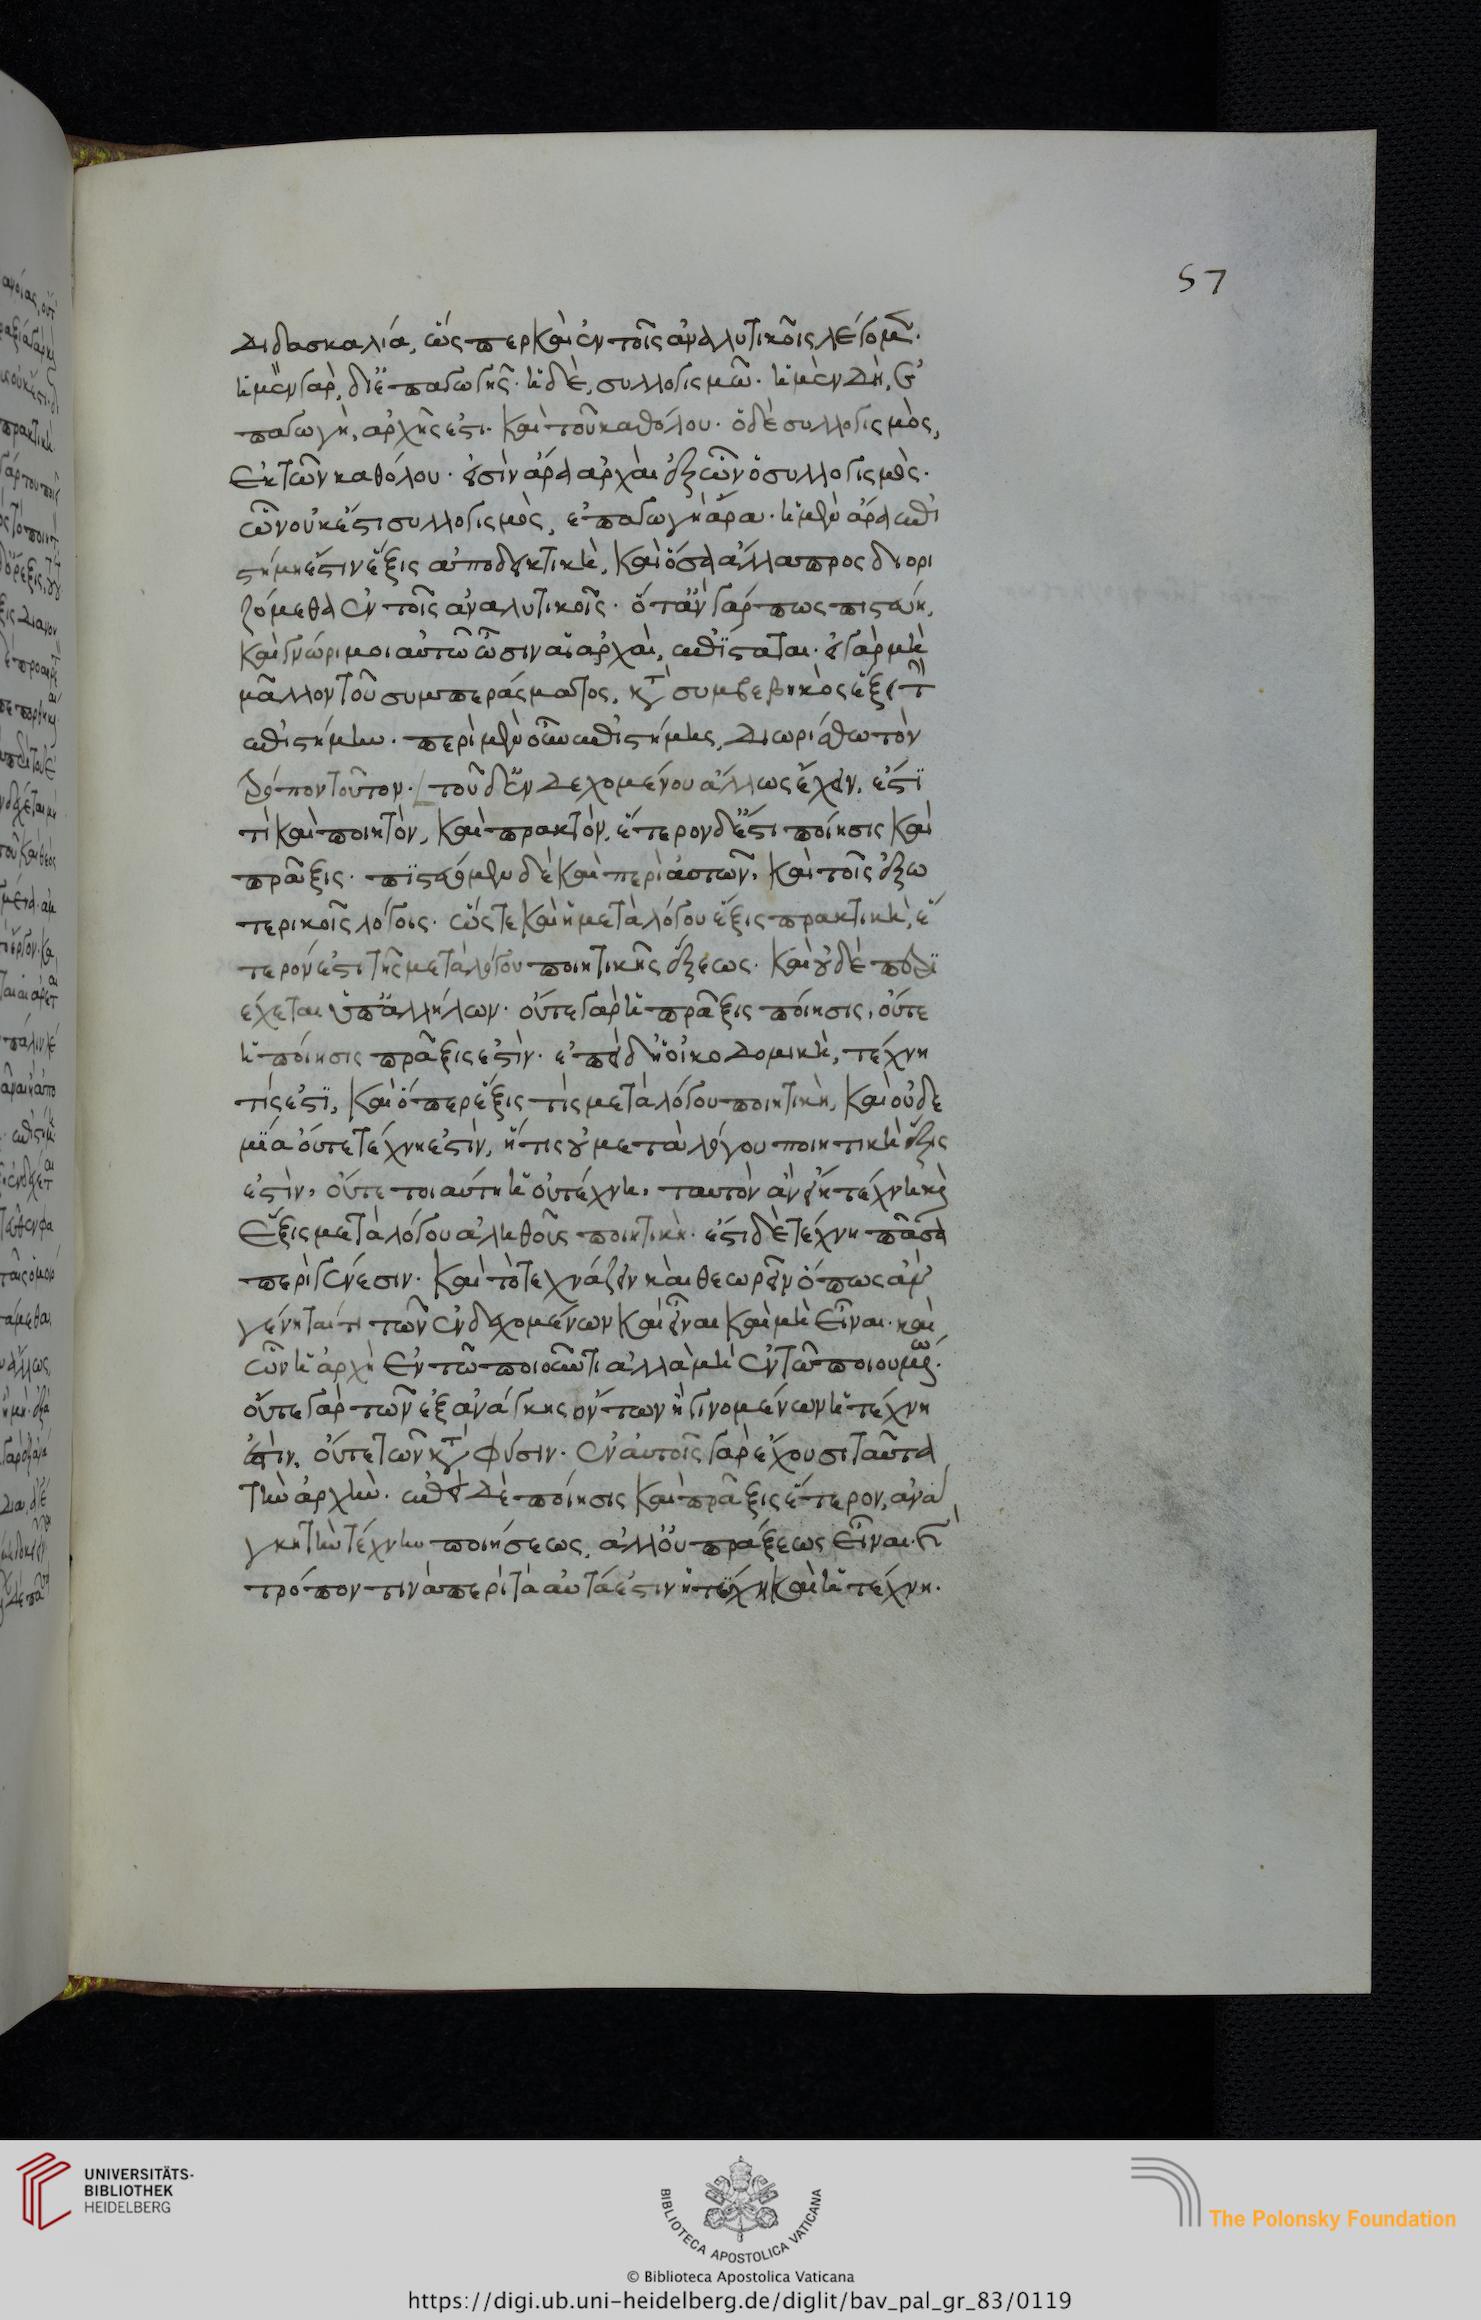 57
διδασκαλία, ὥσπερ καὶ ἐν τοῖς ἀναλυτικοῖς λέγομεν.
ἡ μὲν γὰρ, δι' ἐπαγωγῆς. ἡ δὲ, συλλογισμῶ. ἡ μὲν δὴ, ἐ
παγωγὴ, ἀρχῆς ἐστι. καὶ τοῦ καθόλου. ὁ δὲ συλλογισμὸς,
ἐκ τῶν καθόλου. εἰσὶν ἄρα ἀρχαὶ ἐξ ὧν ὁ συλλογισμὸς.
ὧν οὐκ ἔστι συλλογισμὸς, ἐπαγωγὴ ἄρα. ἡ μὲν ἄρα ἐπι
στήμη ἐστὶν ἕξις ἀποδεικτικὴ, καὶ ὅσα ἄλλα προσδιορι
ζόμεθα ἐν τοῖς ἀναλυτικοῖς. ὅταν γάρ πως πιστεύη,
καὶ γνώριμοι αὐτῶ ὦσιν αἱ ἀρχαὶ, ἐπίσταται. εἰ γὰρ μὴ
μᾶλλον τοῦ συμπεράσματος, κατὰ συμβεβηκὸς ἕξει τὴν
ἐπιστήμην. περὶ μὲν οὖν ἐπιστήμης, διωρίσθω τὸν
τρόπον τοῦτον. τοῦ δ' ἐνδεχομένου ἄλλως ἔχειν, ἐστί
τι καὶ ποιητὸν, καὶ πρακτὸν, ἕτερον δ' ἐστὶ ποίησις καὶ
πρᾶξις. πιστεύομεν δὲ καὶ περὶ αὐτῶν, καὶ τοῖς ἐξω
τερικοῖς λόγοις. ὥστε καὶ ἡ μετὰ λόγου ἕξις πρακτικὴ, ἕ
τερόν ἐστι τῆς μετὰ λόγου ποιητικῆς ἕξεως. καὶ οὐδὲ περι
έχεται ὑπ' ἀλλήλων. οὔτε γὰρ ἡ πρᾶξις ποίησις, οὔτε
ἡ ποίησις πρᾶξις ἐστὶν. ἐπεὶ δ' ἡ οἰκοδομικὴ, τέχνη
τίς ἐστι, καὶ ὅπερ ἕξις τὶς μετὰ λόγου ποιητικὴ, καὶ οὐδε
μία οὔτε τέχνη ἐστὶν, ἥτις οὐ μετὰ λόγου ποιητικὴ ἕξις
ἐστὶν, οὔτε τοιαύτη ἣ οὐ τέχνη, ταυτὸν ἂν εἴη τέχνη καὶ
ἕξις μετὰ λόγου ἀληθοῦς ποιητικὴ. ἔστι δὲ τέχνη πᾶσα
περὶ γένεσιν. καὶ τὸ τεχνάζειν καὶ θεωρεῖν ὅπως ἂν
γένηταί τι τῶν ἐνδεχομένων καὶ εἶναι καὶ μὴ εἶναι. καὶ
ὧν ἡ ἀρχὴ ἐν τῶ ποιοῦντι ἀλλὰ μὴ ἐν τῶ ποιουμένω.
οὔτε γὰρ τῶν ἐξ ἀνάγκης ὄντων ἢ γινομένων ἡ τέχνη
ἐστὶν, οὔτε τῶν κατὰ φύσιν. ἐν αὐτοῖς γὰρ ἔχουσι ταῦτα
τὴν ἀρχὴν. ἐπεὶ δὲ ποίησις καὶ πρᾶξις ἕτερον, ἀνά
γκη τὴν τέχνην ποιήσεως, ἀλλ' οὐ πράξεως εἶναι. καὶ
τρόπον τινὰ περὶ τὰ αὐτά ἐστιν ἡ τύχη καὶ ἡ τέχνη.
UNIVERSITÄTS-
BIBLIOTHEK
HEIDELBERG
BIBLIOTECA APOSTOLICA VATICANA
The Polonsky Foundation
© Biblioteca Apostolica Vaticana
https://digi.ub.uni-heidelberg.de/diglit/bav_pal_gr_83/0119